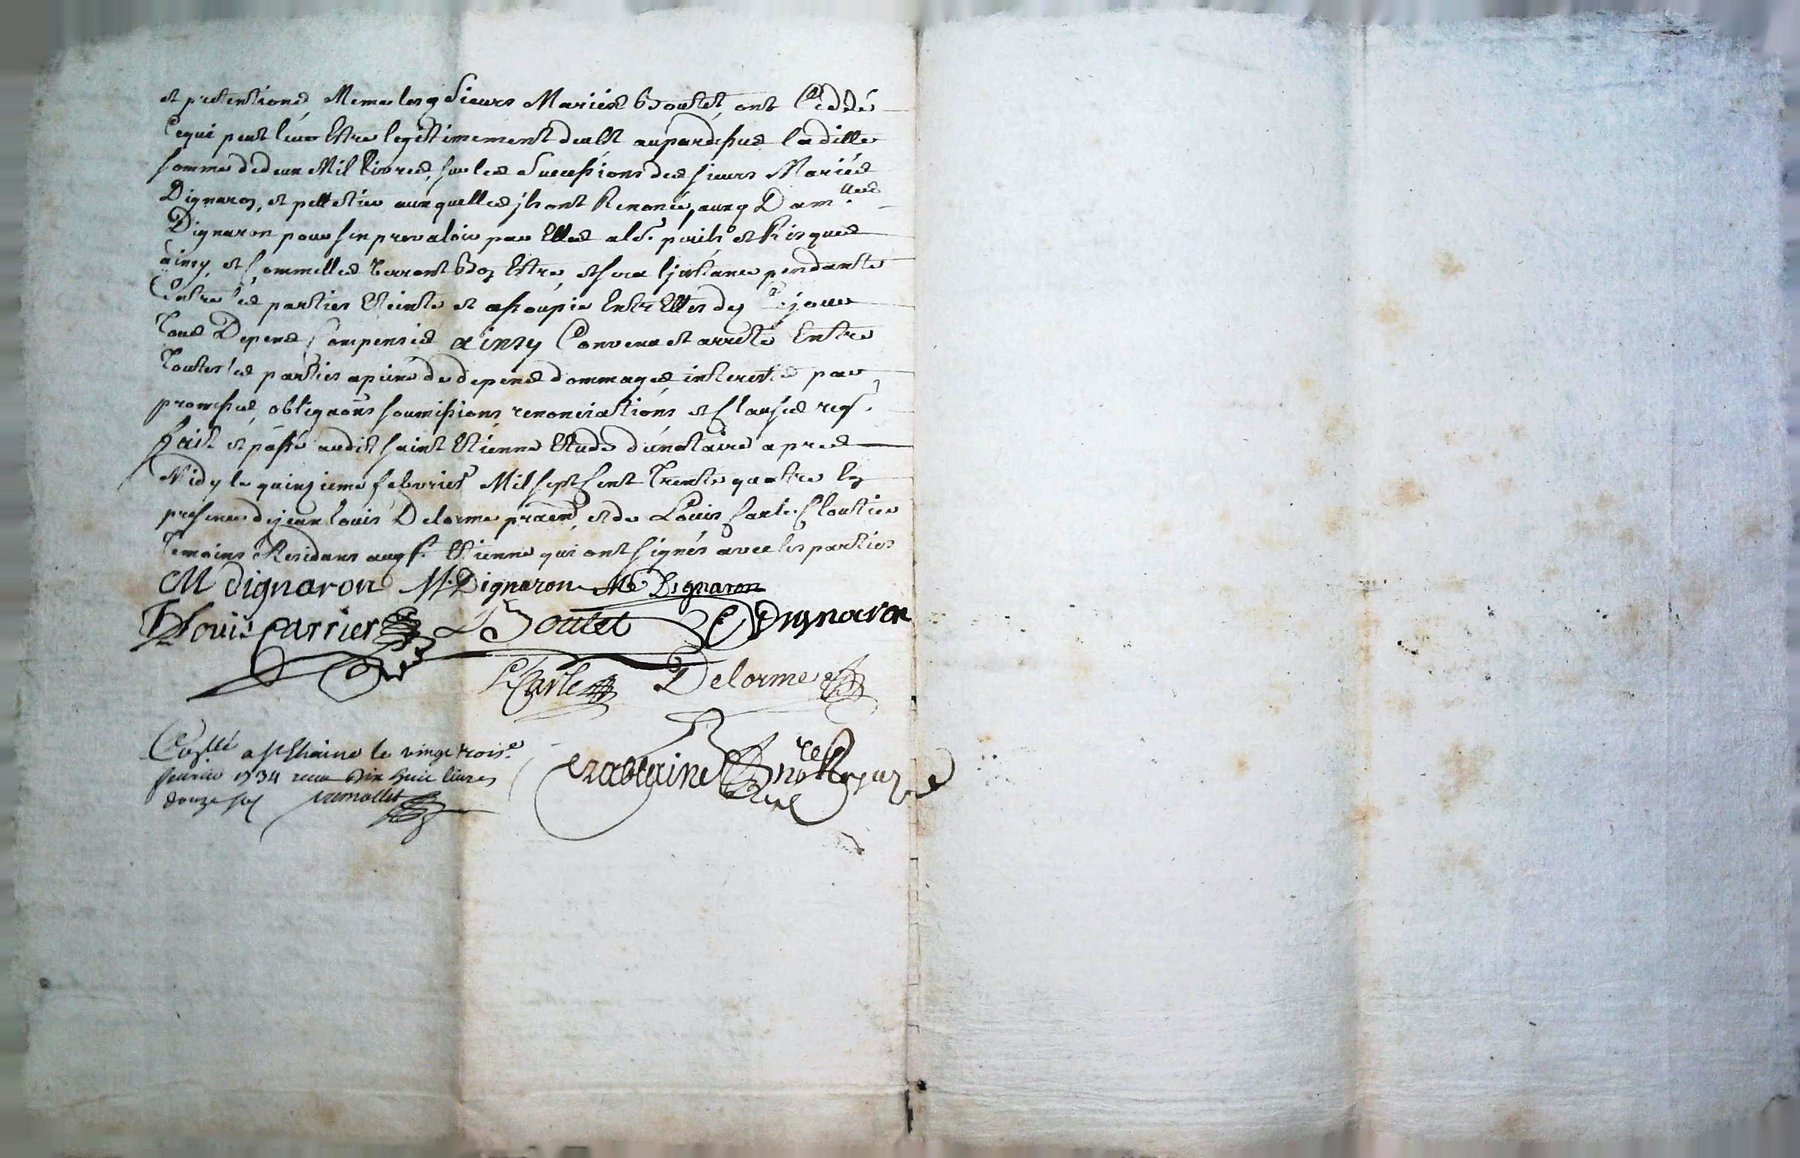 et pretentions Meme les q Sieurs Mariés Boutet ont Ceddé
Ce qui peut leur Estre legitimement deubt aupardessus laditte
somme de deux Mil livres sur les Successions des sieurs Mariés
Dignaron, et pelletier auxquelles ils ont Renoncé, aux q Dam.lles
Dignaron pour s'en prevaloir par Elles a leur perils et Risques
ainsy, et Comme Elles verront bon Estre, et sera l'jnstance pendante
Entre les parties Eteinte et assoupie Entr'Elles des Ce jour
tous Depens Compensés ainsy Convenu et arresté Entre
toutes les parties a peine de depens dommages interests par
promesses obligaons soumissions renonciations et Clauses
fait et passé audit saint Etienne Etude du notaire apres
Midy le quinzieme febvrier Mil sept Cent trente quatre En
presence de jean louis Delorme praen, et de Louis Carle Cloutier
temoins Residans aud St. Etienne qui ont signés avec les parties
CM dignaron M Dignaron M Dignaron
Louis Carrier Boutet C Dignaron
L Carle Delorme
Con.llé a St Etienne le vingt trois.e
fevrier 1734 receu dix huit livres
douze sols